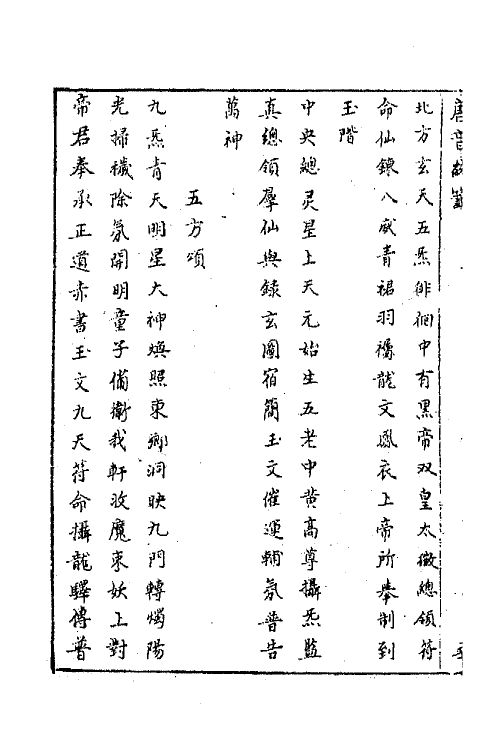 唐音統籤
北方玄天五炁徘徊中有黑帝双皇太微總領符
命仙錬八威青裙羽襡龍文鳳衣上帝所舉制到
玉階
中央總灵星上天元始生五老中黄高尊攝炁監
真總領羣仙典錄玄圖宿簡玉文催運輔氛普告
萬神
五方頌
九炁青天明星大神煥照東鄉洞映九門轉燭陽
光掃穢除氛開明童子備衛我軒收魔束妖上對
帝君奉承正道赤書玉文九天符命攝龍驛傳普